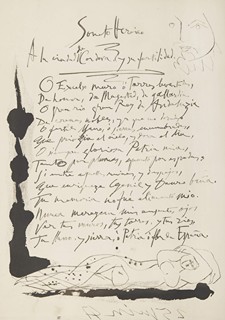 Soneto Heroico
A la ciudad de Cordova y su fertilidad
O Excelso muro o Torres levantadas
De honor, de Magestad, de gallardia
O gran rio gran Rey de Andaluzia
De arenas nobles, ya que no doradas
O fertil llano, o sierras encumbradas
Que privilegia el cielo, y dora el dia
O siempre gloriosa Patria mia
Tanto por plumas, quanto por espadas
Si entre aquellas ruinas, y despojos
Que Genil y Dauro baña
Tu memoria no fue alimento mio
Nunca merezcan mis ausentes ojos
Ver tus muros, tus torres, y tu rio
Tu llano, y sierra, o Patria o flor de España